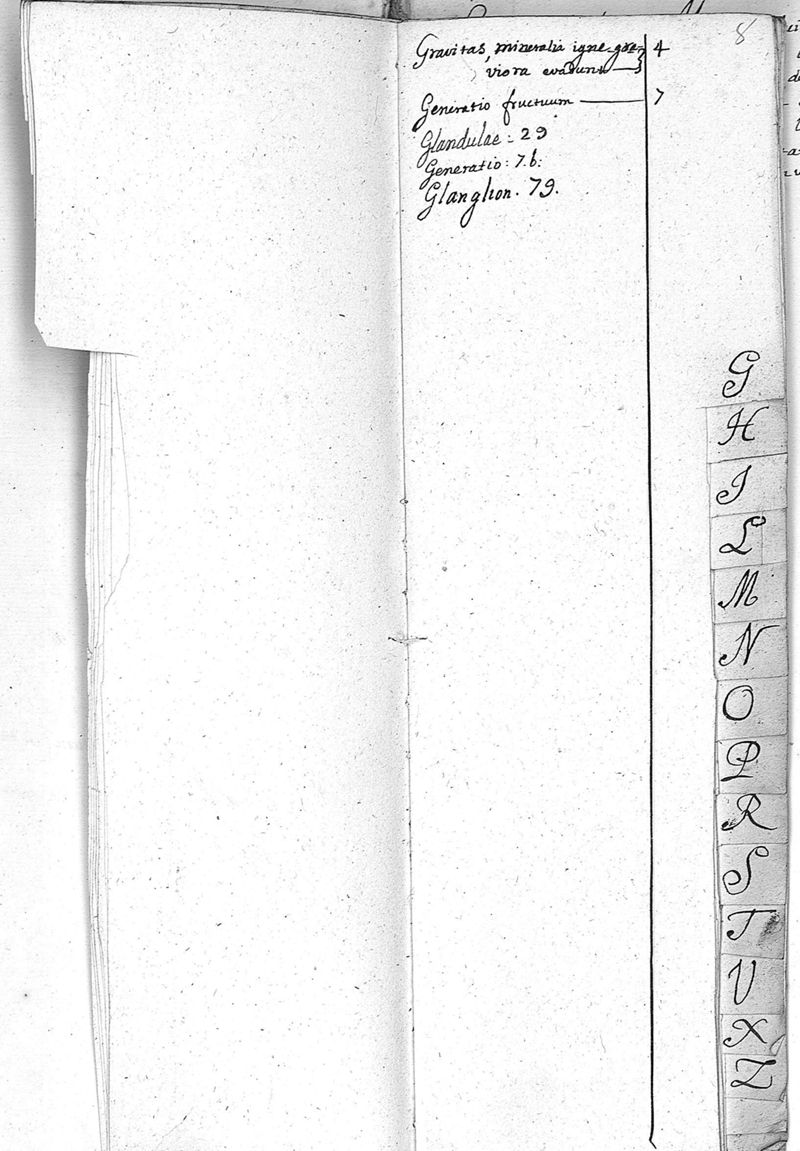 8
Gravitas, mineralia igne gra- 4
viora evadunt
Generatio fructuum 7
Glandulae: 29
Generatio: 7.b:
Glanglion. 79.
G
H
I
L
M
N
O
P
R
S
T
V
X
Z